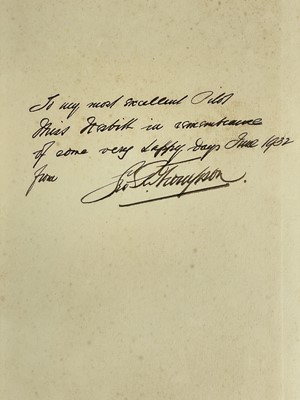 To my most excellent Pilot
Miss Nesbitt in remembrance
of some very happy days June 1932
from Thompson